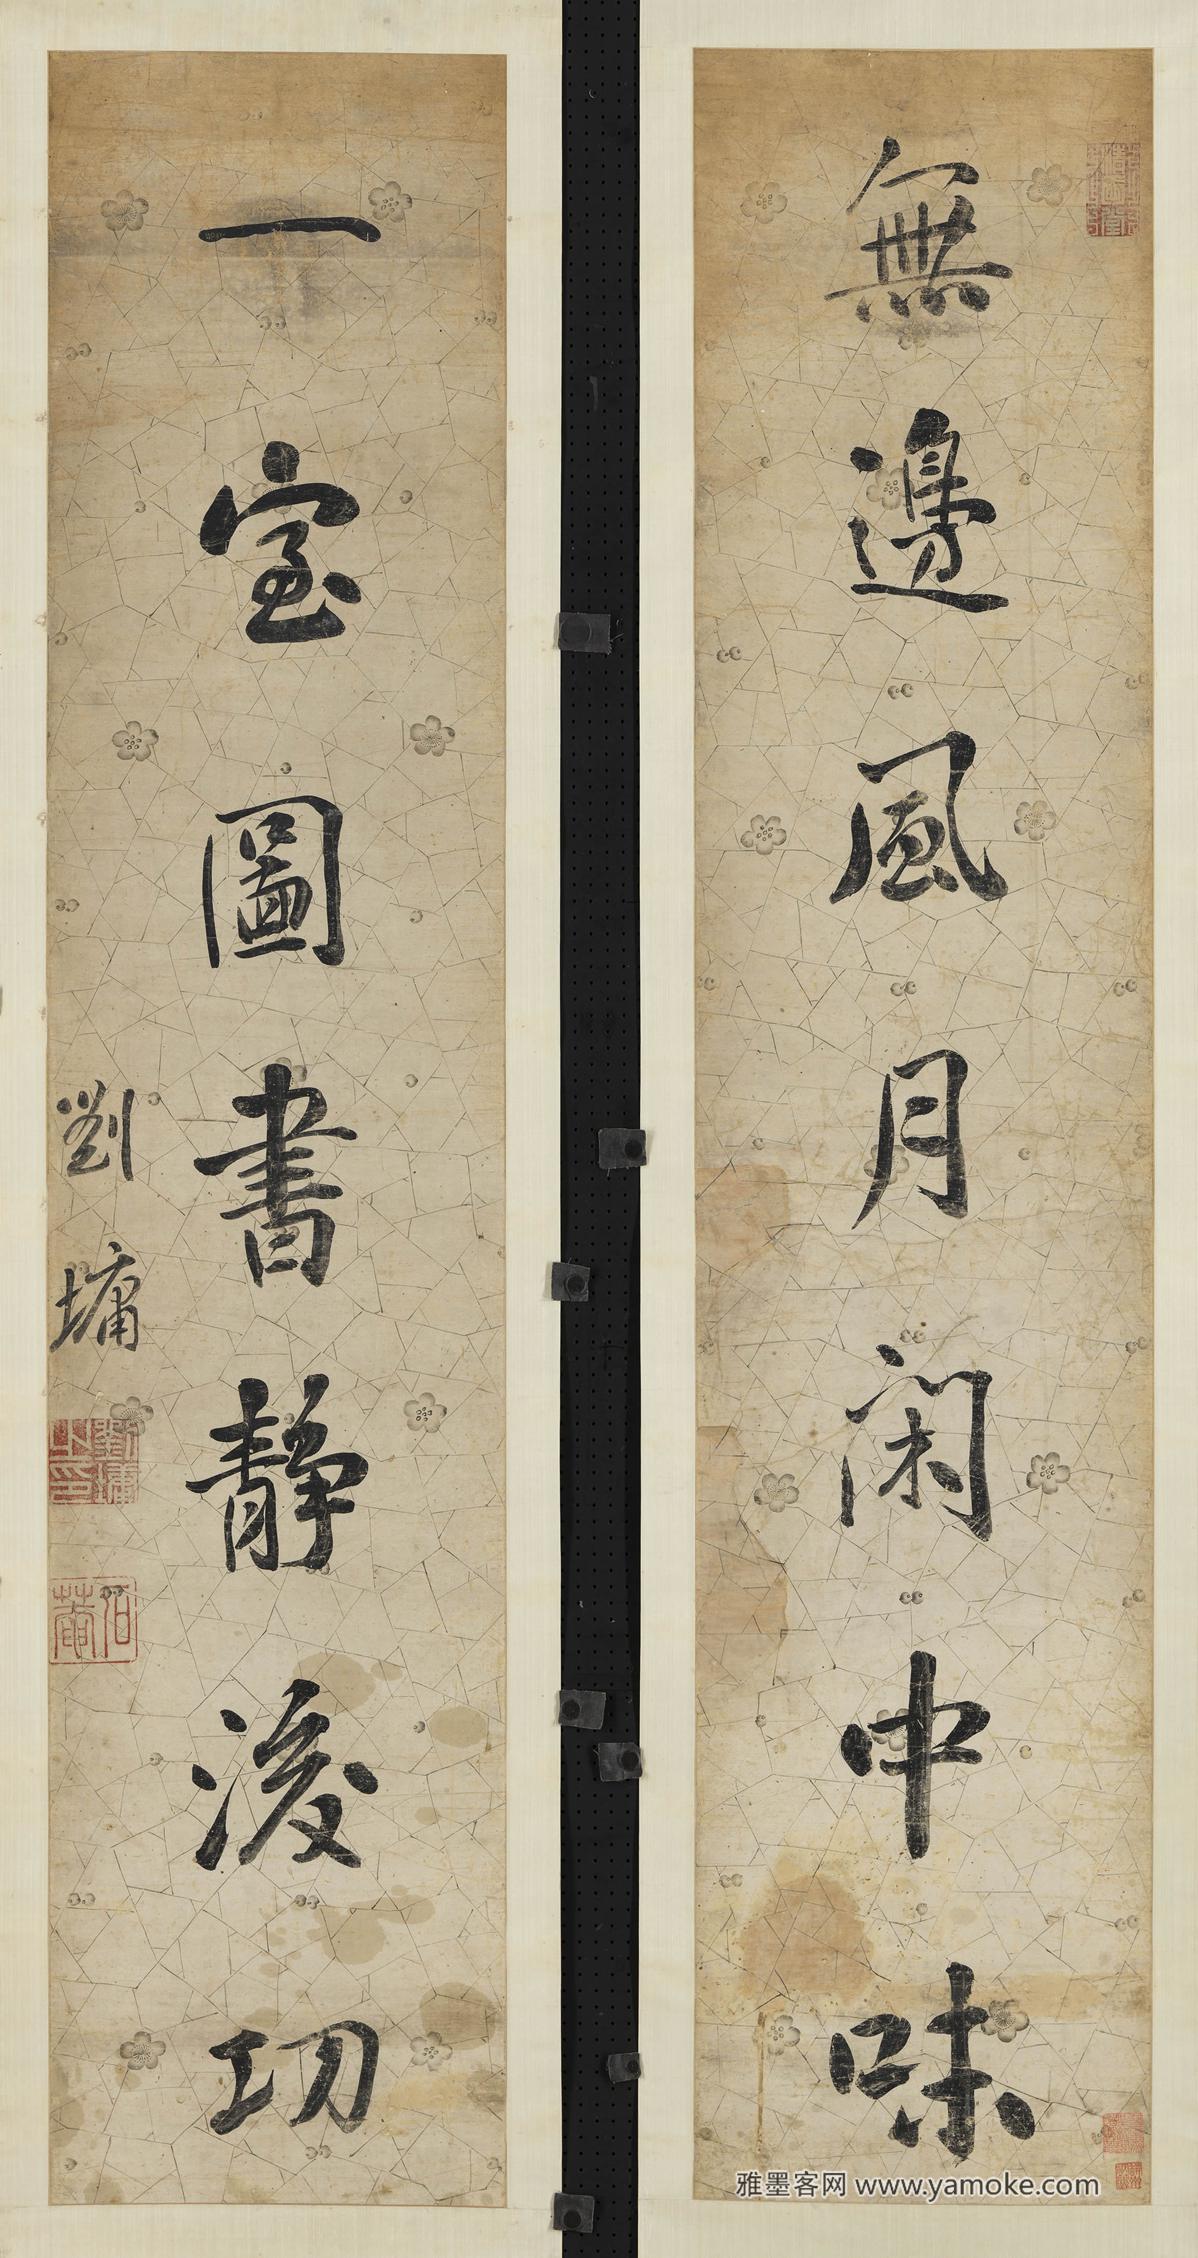 無邊風月閑中味
一室圖書静後功
劉墉
劉墉之印
石菴
雅墨客网 www.yamoke.com